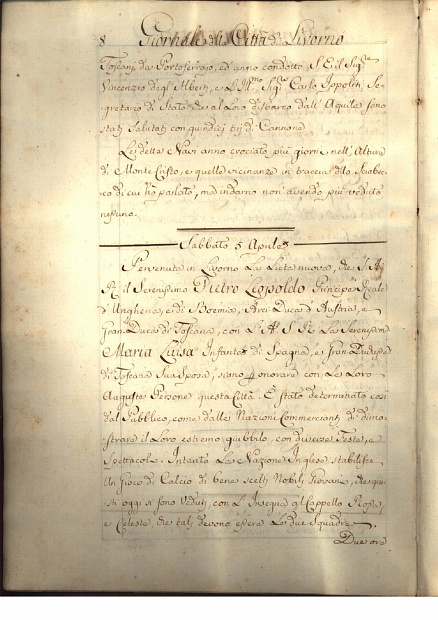 8 Giornale della Città di Livorno
Toscani da Portoferrajo, ed anno condotto S. E. il Sig.re
Vincenzio degl'Alberti, e l'Ill.mo Sig.re Carlo Ippoliti Se-
gretario di Stato, che al Loro disbarco dall'Aquila sono
stati salutati con quindici tiri di Cannone
Le dette Navi anno crociato più giorni nell'Alture
di Monte Cristo, e quelle vicinanze in traccia dello Sciabec-
co di cui hò parlato, ma indarno non avendo più veduto
nessuno.
Sabbato 5 Aprile
Pervenuta in Livorno La Lieta nuova, che S. A.
R. il Serenissimo Pietro Leopoldo Principe Reale
d'Ungheria, e di Boemia, Arci-Duca d'Austria, e
Gran-Duca di Toscana, con L'A. S. R. La Serenissima
Maria Luisa Infanta di Spagna, e Gran-Duchessa
di Toscana Sua Sposa, siano p onorare con Le Loro
Auguste Persone questa Città. È stato determinato così
dal Pubblico, come dalle Nazioni Commercianti di dimo-
strare il Loro estremo giubbilo, con diverse Feste, e
Spettacoli. Intanto La Nazione Inglese stabilisce
un Gioco di Calcio di bene scelti Nobili Giovani, che que-
sti oggi si sono Veduti, con L'Insegna al Cappello Rossa,
e Celeste, che tali devono essere Le due Squadre.
Due ore